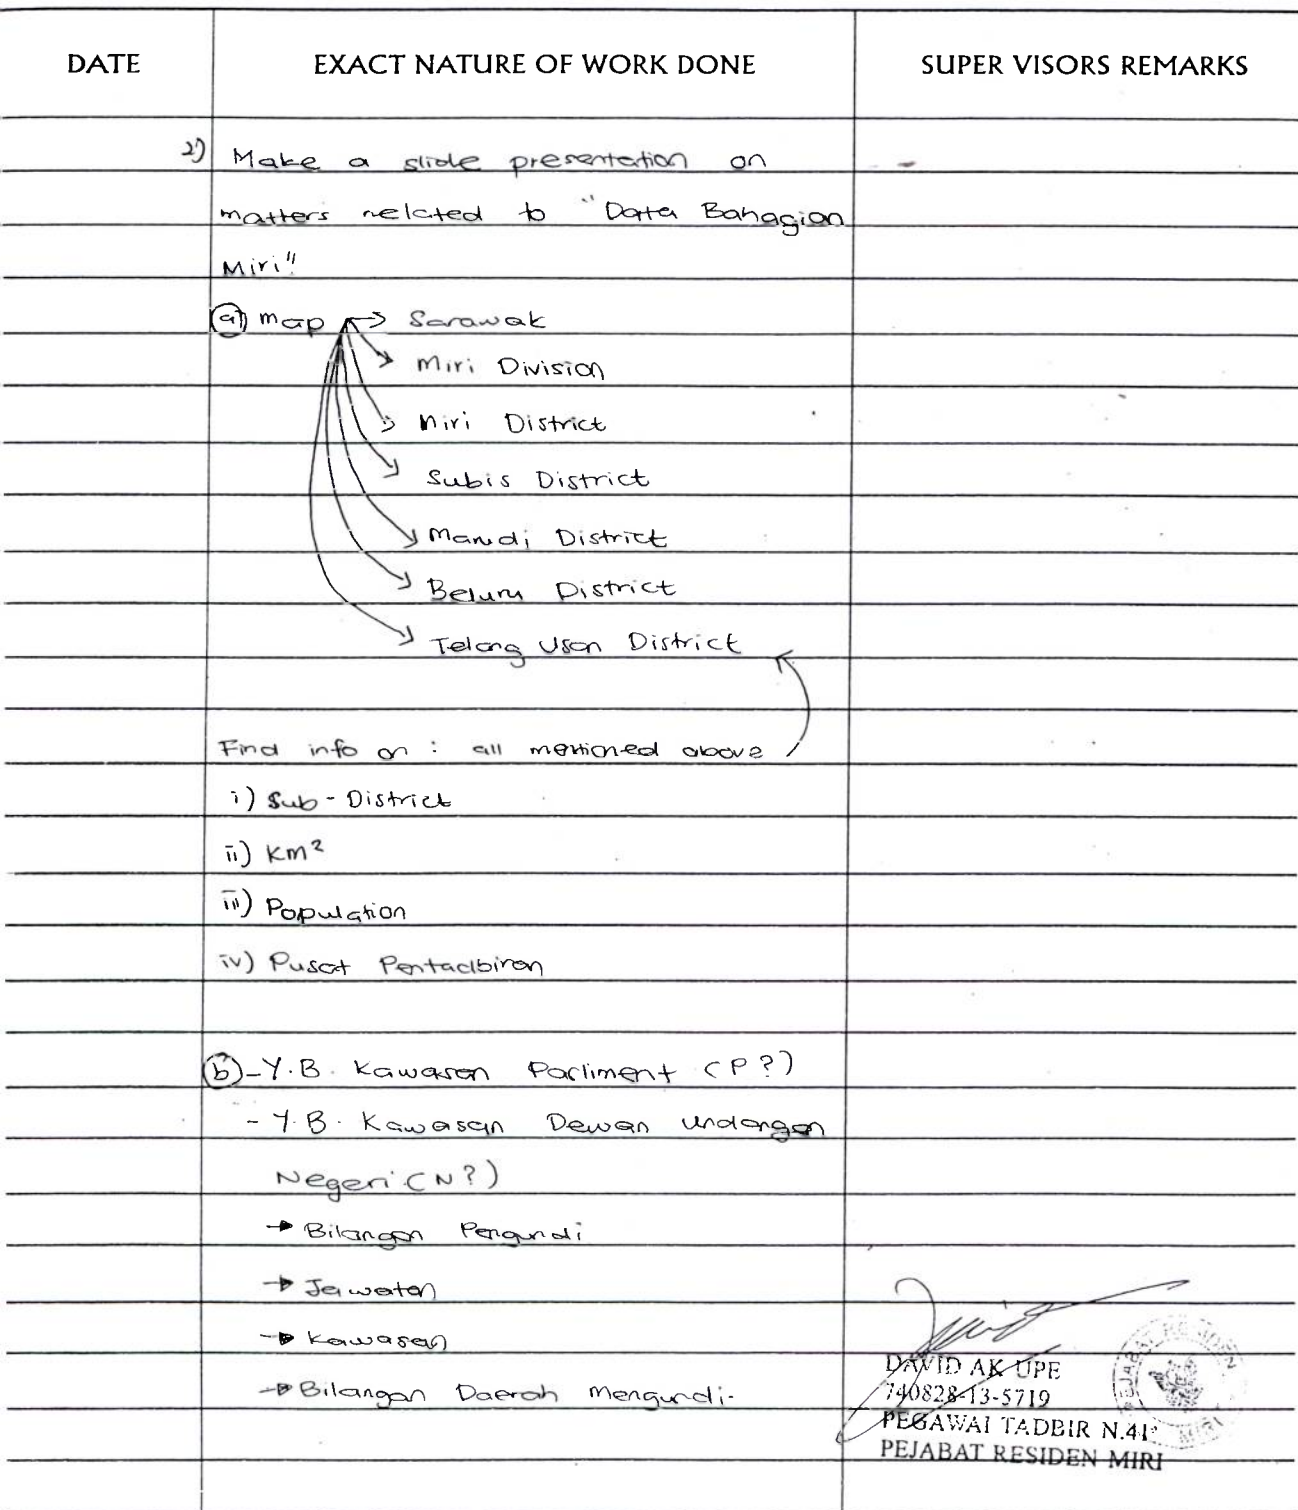 DATE EXACT NATURE OF WORK DONE SUPER VISORS REMARKS
2) Make a slide presentation on
matters related to "Data Bahagian
Miri"
(a) map → Sarawak
→ Miri Division
→ Miri District
→ Subis District
→ Marudi District
→ Beluru District
→ Telang Usan District
Find info on : all mentioned above
i) Sub-District
ii) Km²
iii) Population
iv) Pusat Pentadbiran
(b) - Y.B. Kawasan Parliment (P?)
- Y.B. Kawasan Dewan undangan
Negeri (N?)
→ Bilangan Pengundi
→ Jawatan
→ Kawasan
→ Bilangan Daerah Mengundi.
DAVID AK UPE
740828-13-5719
PEGAWAI TADBIR N.41
PEJABAT RESIDEN MIRI
PEJABAT RESIDEN
MIRI